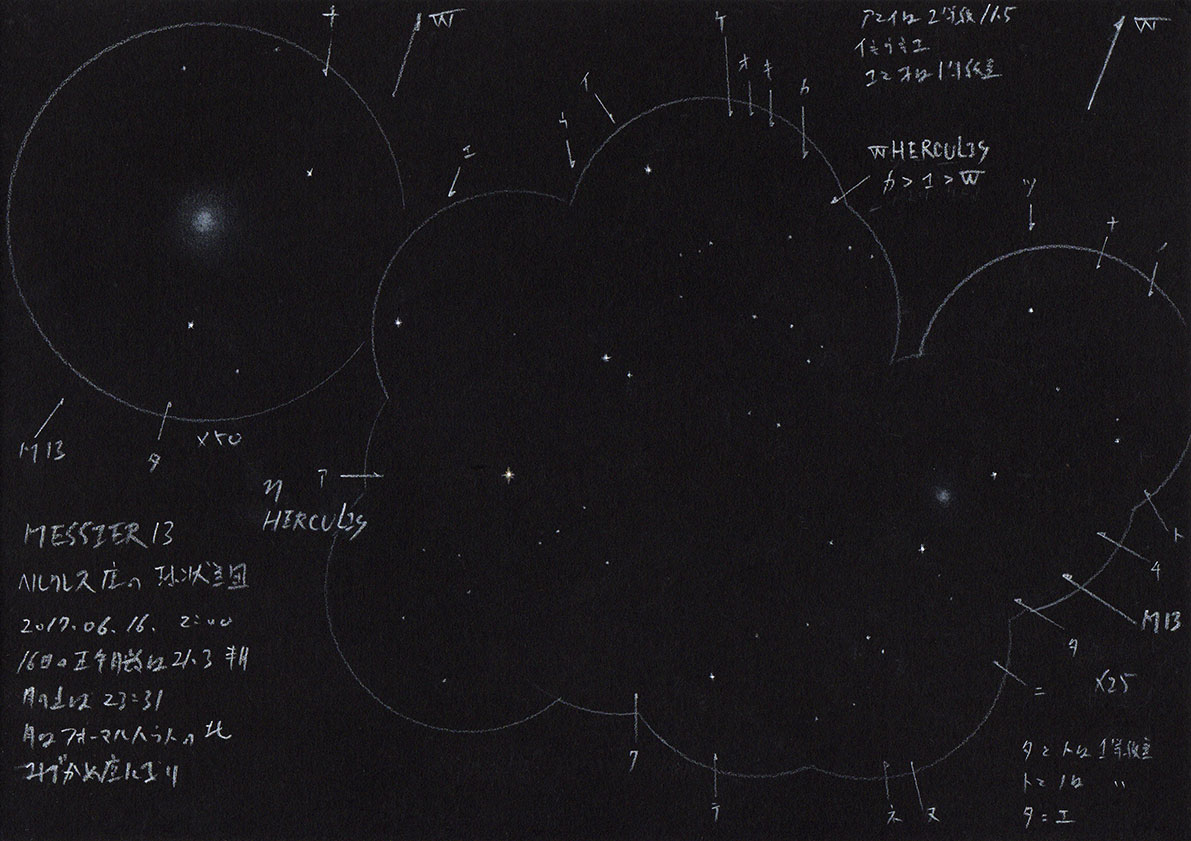 チ
W
ケ
オ
キ
カ
イ
ウ
エ
アとイは 2等級/1.5
W
W HERCULIS
カ>エ>W
ツ
ナ
ノ
M13
タ
×50
ア
η
HERCULIS
MESSIER 13
ヘルクレス座の 球状星団
2017.06.16. 2:00
16日の正午月齢は21.3 半月
月の出は 23:31
月はフォーマルハウトの北
みずがめ座にあり
ト
チ
M13
タ
ニ
×25
ク
テ
ネ
ヌ
タとトは 1等級差
トとノは 〃
タ=エ